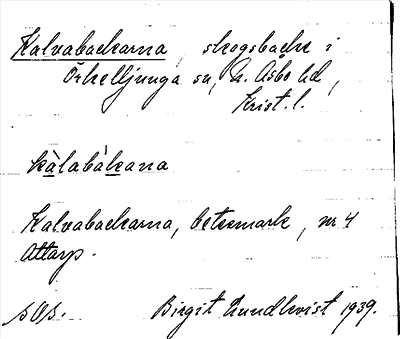 Kalvabackarna, skogsbacke i
Örkelljunga sn, N. Åsbo hd,
Krist. l.
kàlabàkana
Kalvabackarna, betesmark, nr 4
Attarp.
Birgit Lundkvist 1939.